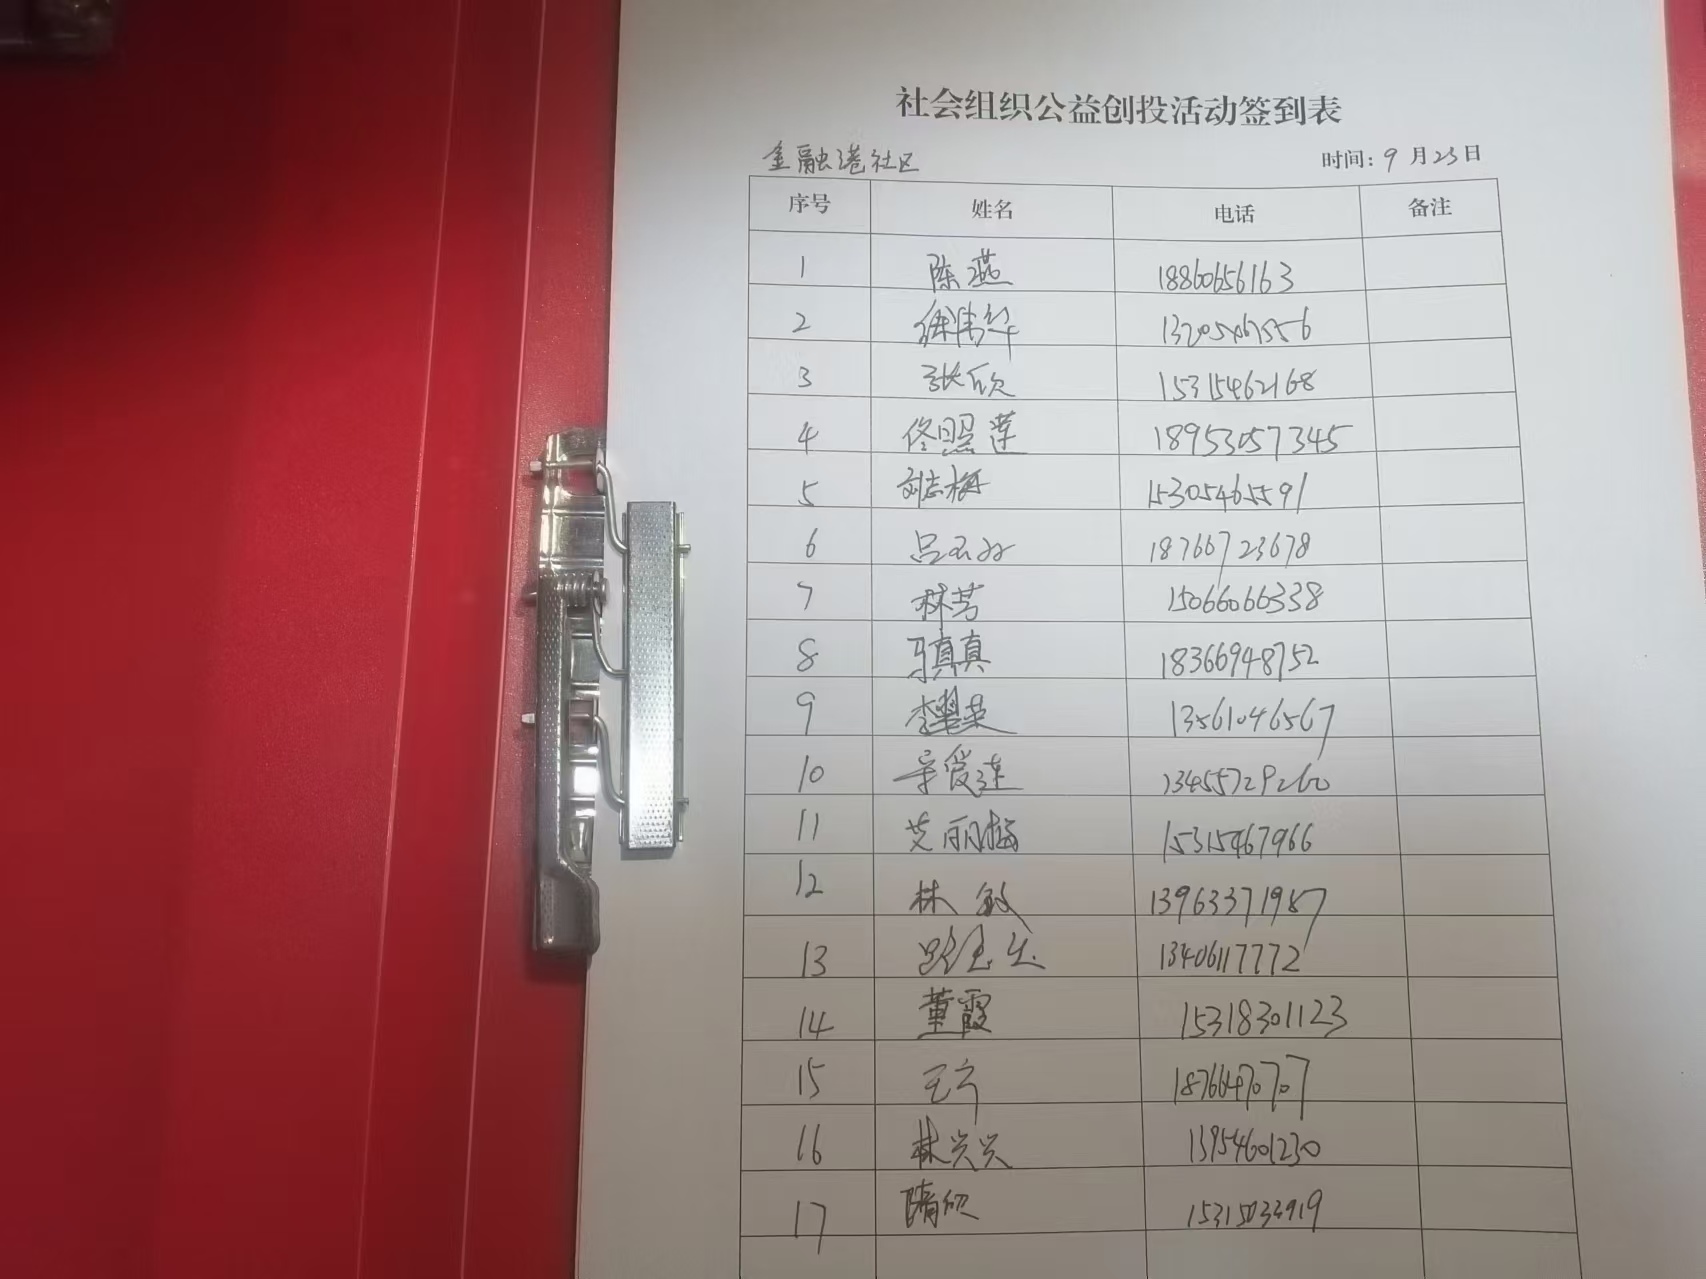 社会组织公益创投活动签到表
金融港社区 时间：9月23日
序号 姓名 电话 备注
1 陈燕 18860656163
2 徐伟华 13205467556
3 张欣 15315462168
4 佟照莲 18953057345
5 刘志梅 15305465591
6 吕 18766723678
7 林芳 15066066338
8 马真真 18366948752
9 李翠英 13561046567
10 爱莲 13455729260
11 艾丽梅 15315467966
12 林敏 13963371987
13 13406117772
14 董霞 15318301123
15 18766470707
16 林兴兴 13954601230
17 隋欣 15315033919